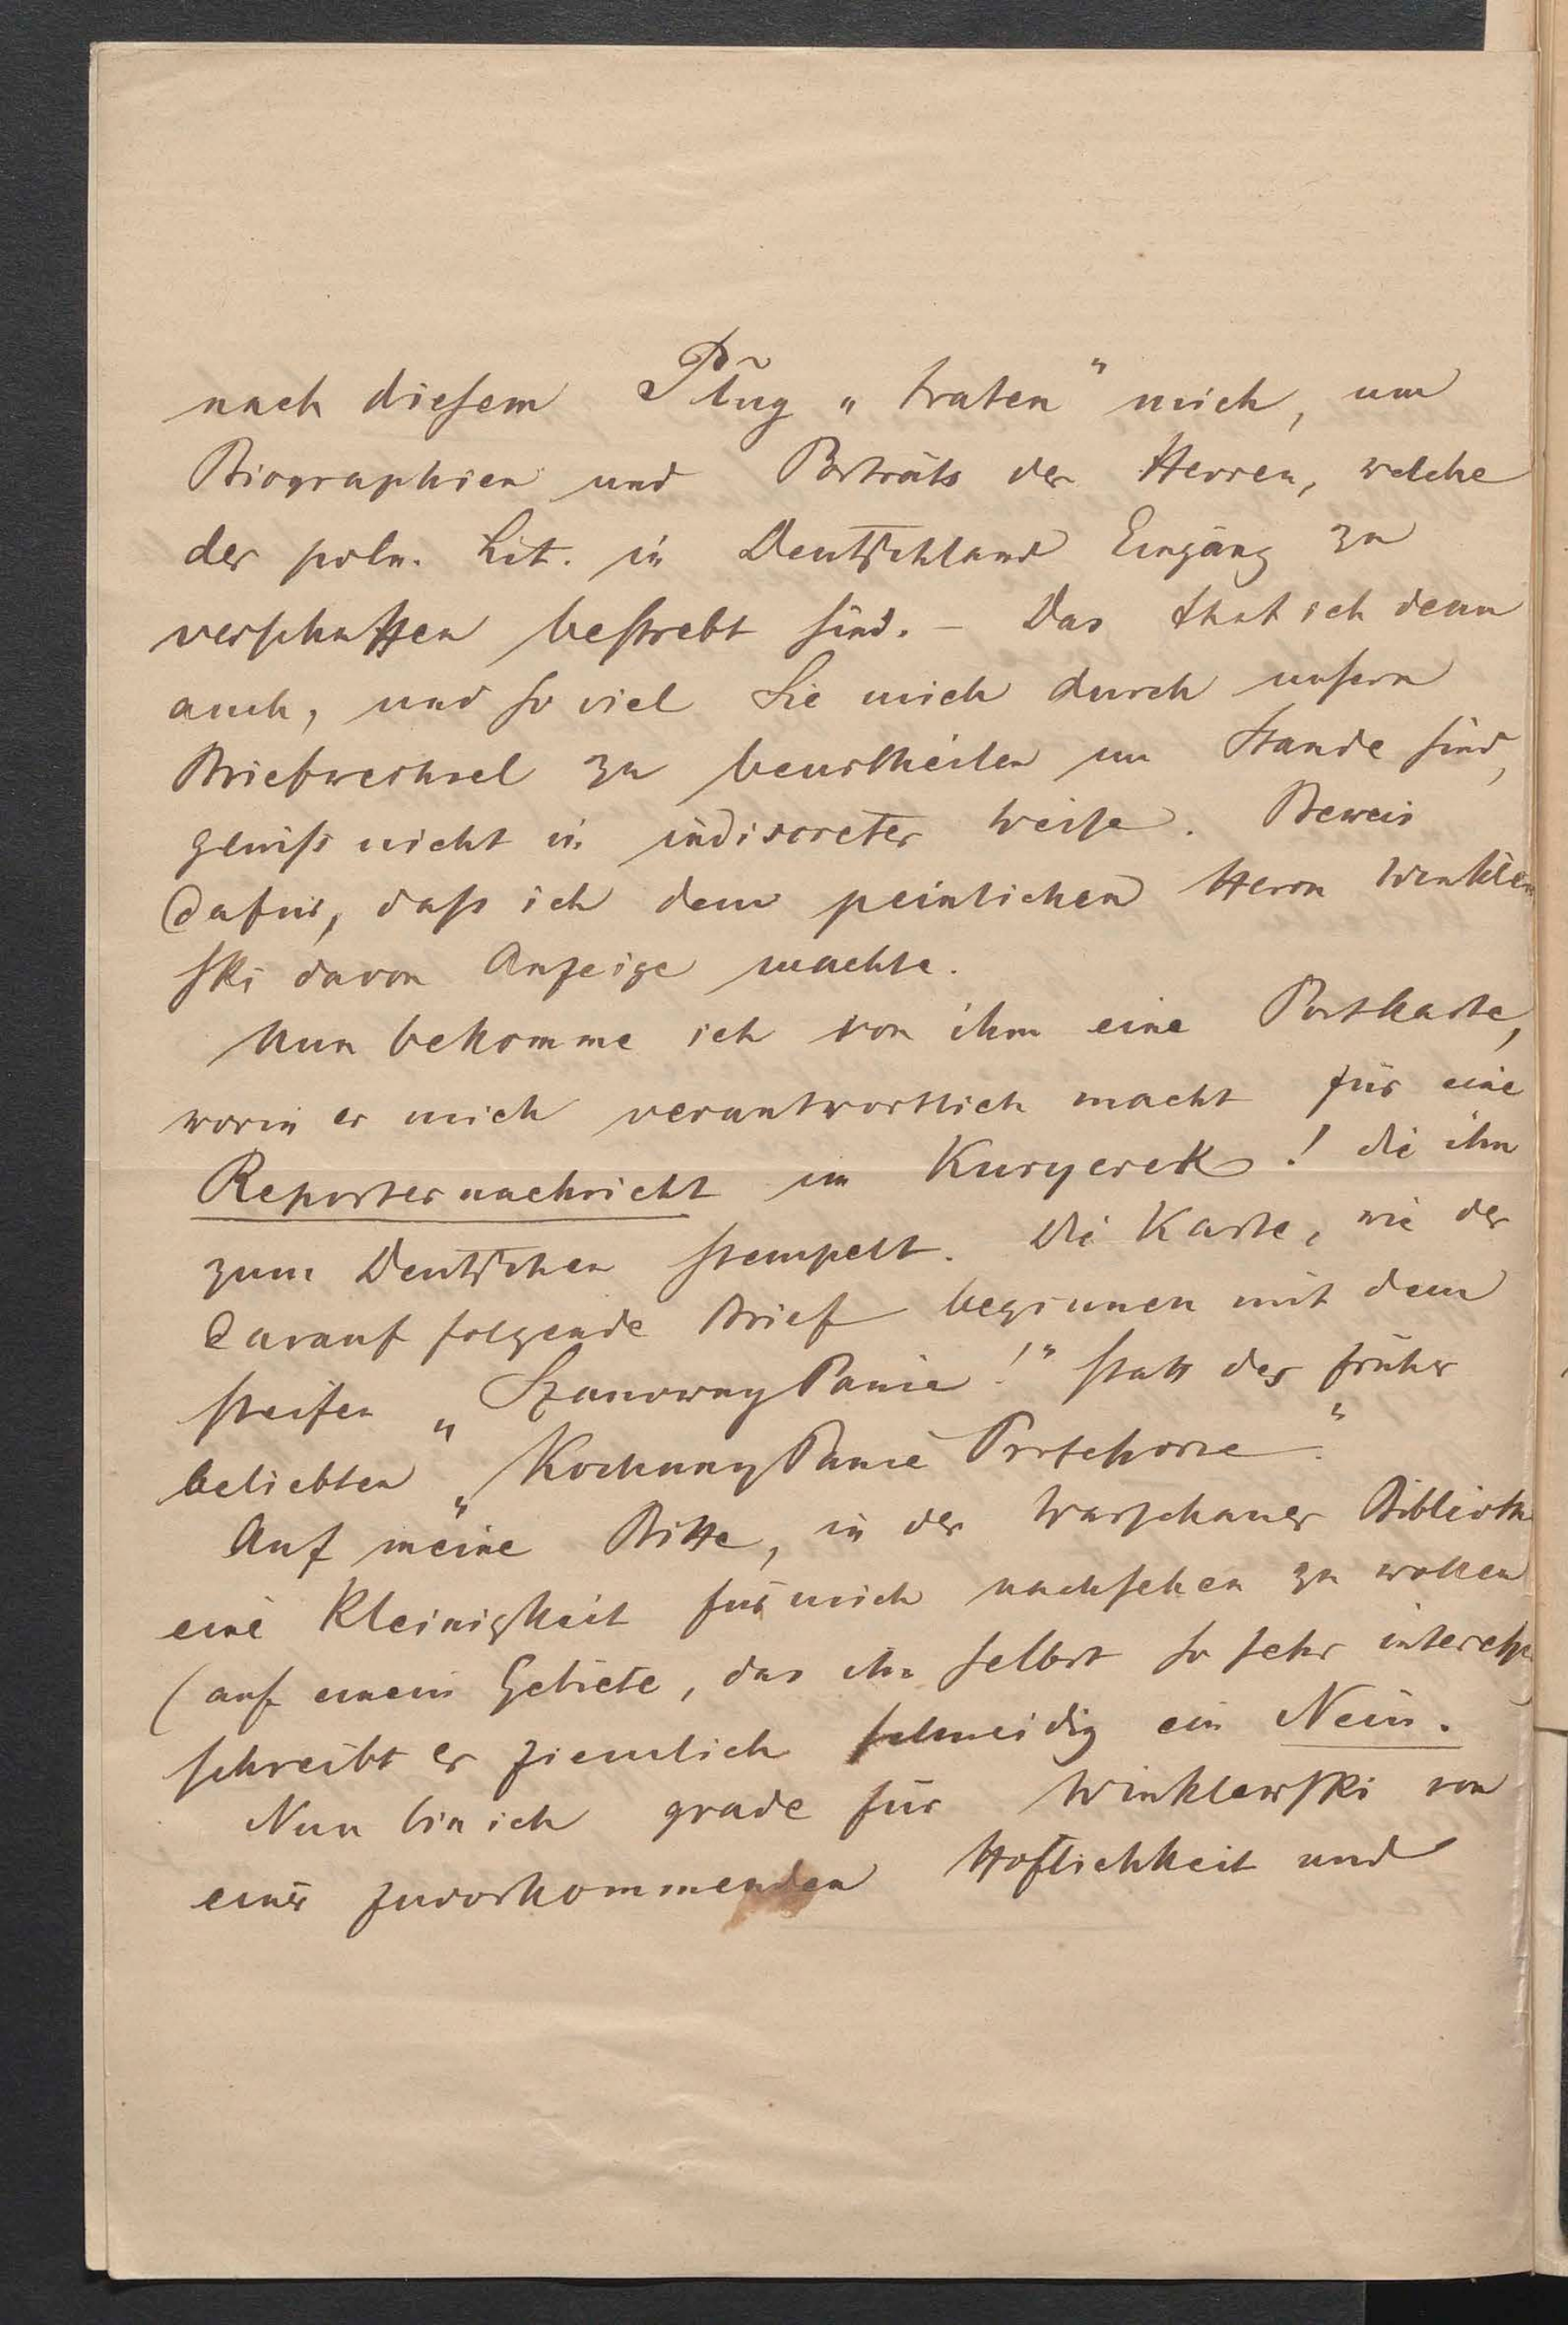 nach diesem Plug „traten" mich, um
Biographien und Porträts der Herren, welche
der poln. Lit. in Deutschland Eingang zu
verschaffen bestrebt sind. – Das that ich denn
auch, und so viel Sie mich durch unsern
Briefwechsel zu beurtheilen im Stande sind,
gewiss nicht in indiscreter Weise. Beweis
dafür, dass ich dem peinlichen Herrn Winklew
ski davon Anzeige machte.
Nun bekomme ich von ihm eine Postkarte,
worin er mich verantwortlich macht für eine
Reporternachricht im Kuryerek! die ihn
zum Deutschen stempelt. Die Karte, wie der
darauf folgende Brief beginnen mit dem
steifen „Szanowny Panie!" statt des früher
beliebten „Kochany Panie Profesorze."
Auf meine Bitte, in der Warschauer Biblioth
eine Kleinigkeit für mich nachsehen zu wollen
(auf einem Gebiete, das ihn selbst so sehr interess
schreibt er ziemlich schneidig ein Nein.
Nun bin ich grade für Winklewski von
einer zuvorkommenden Höflichkeit und